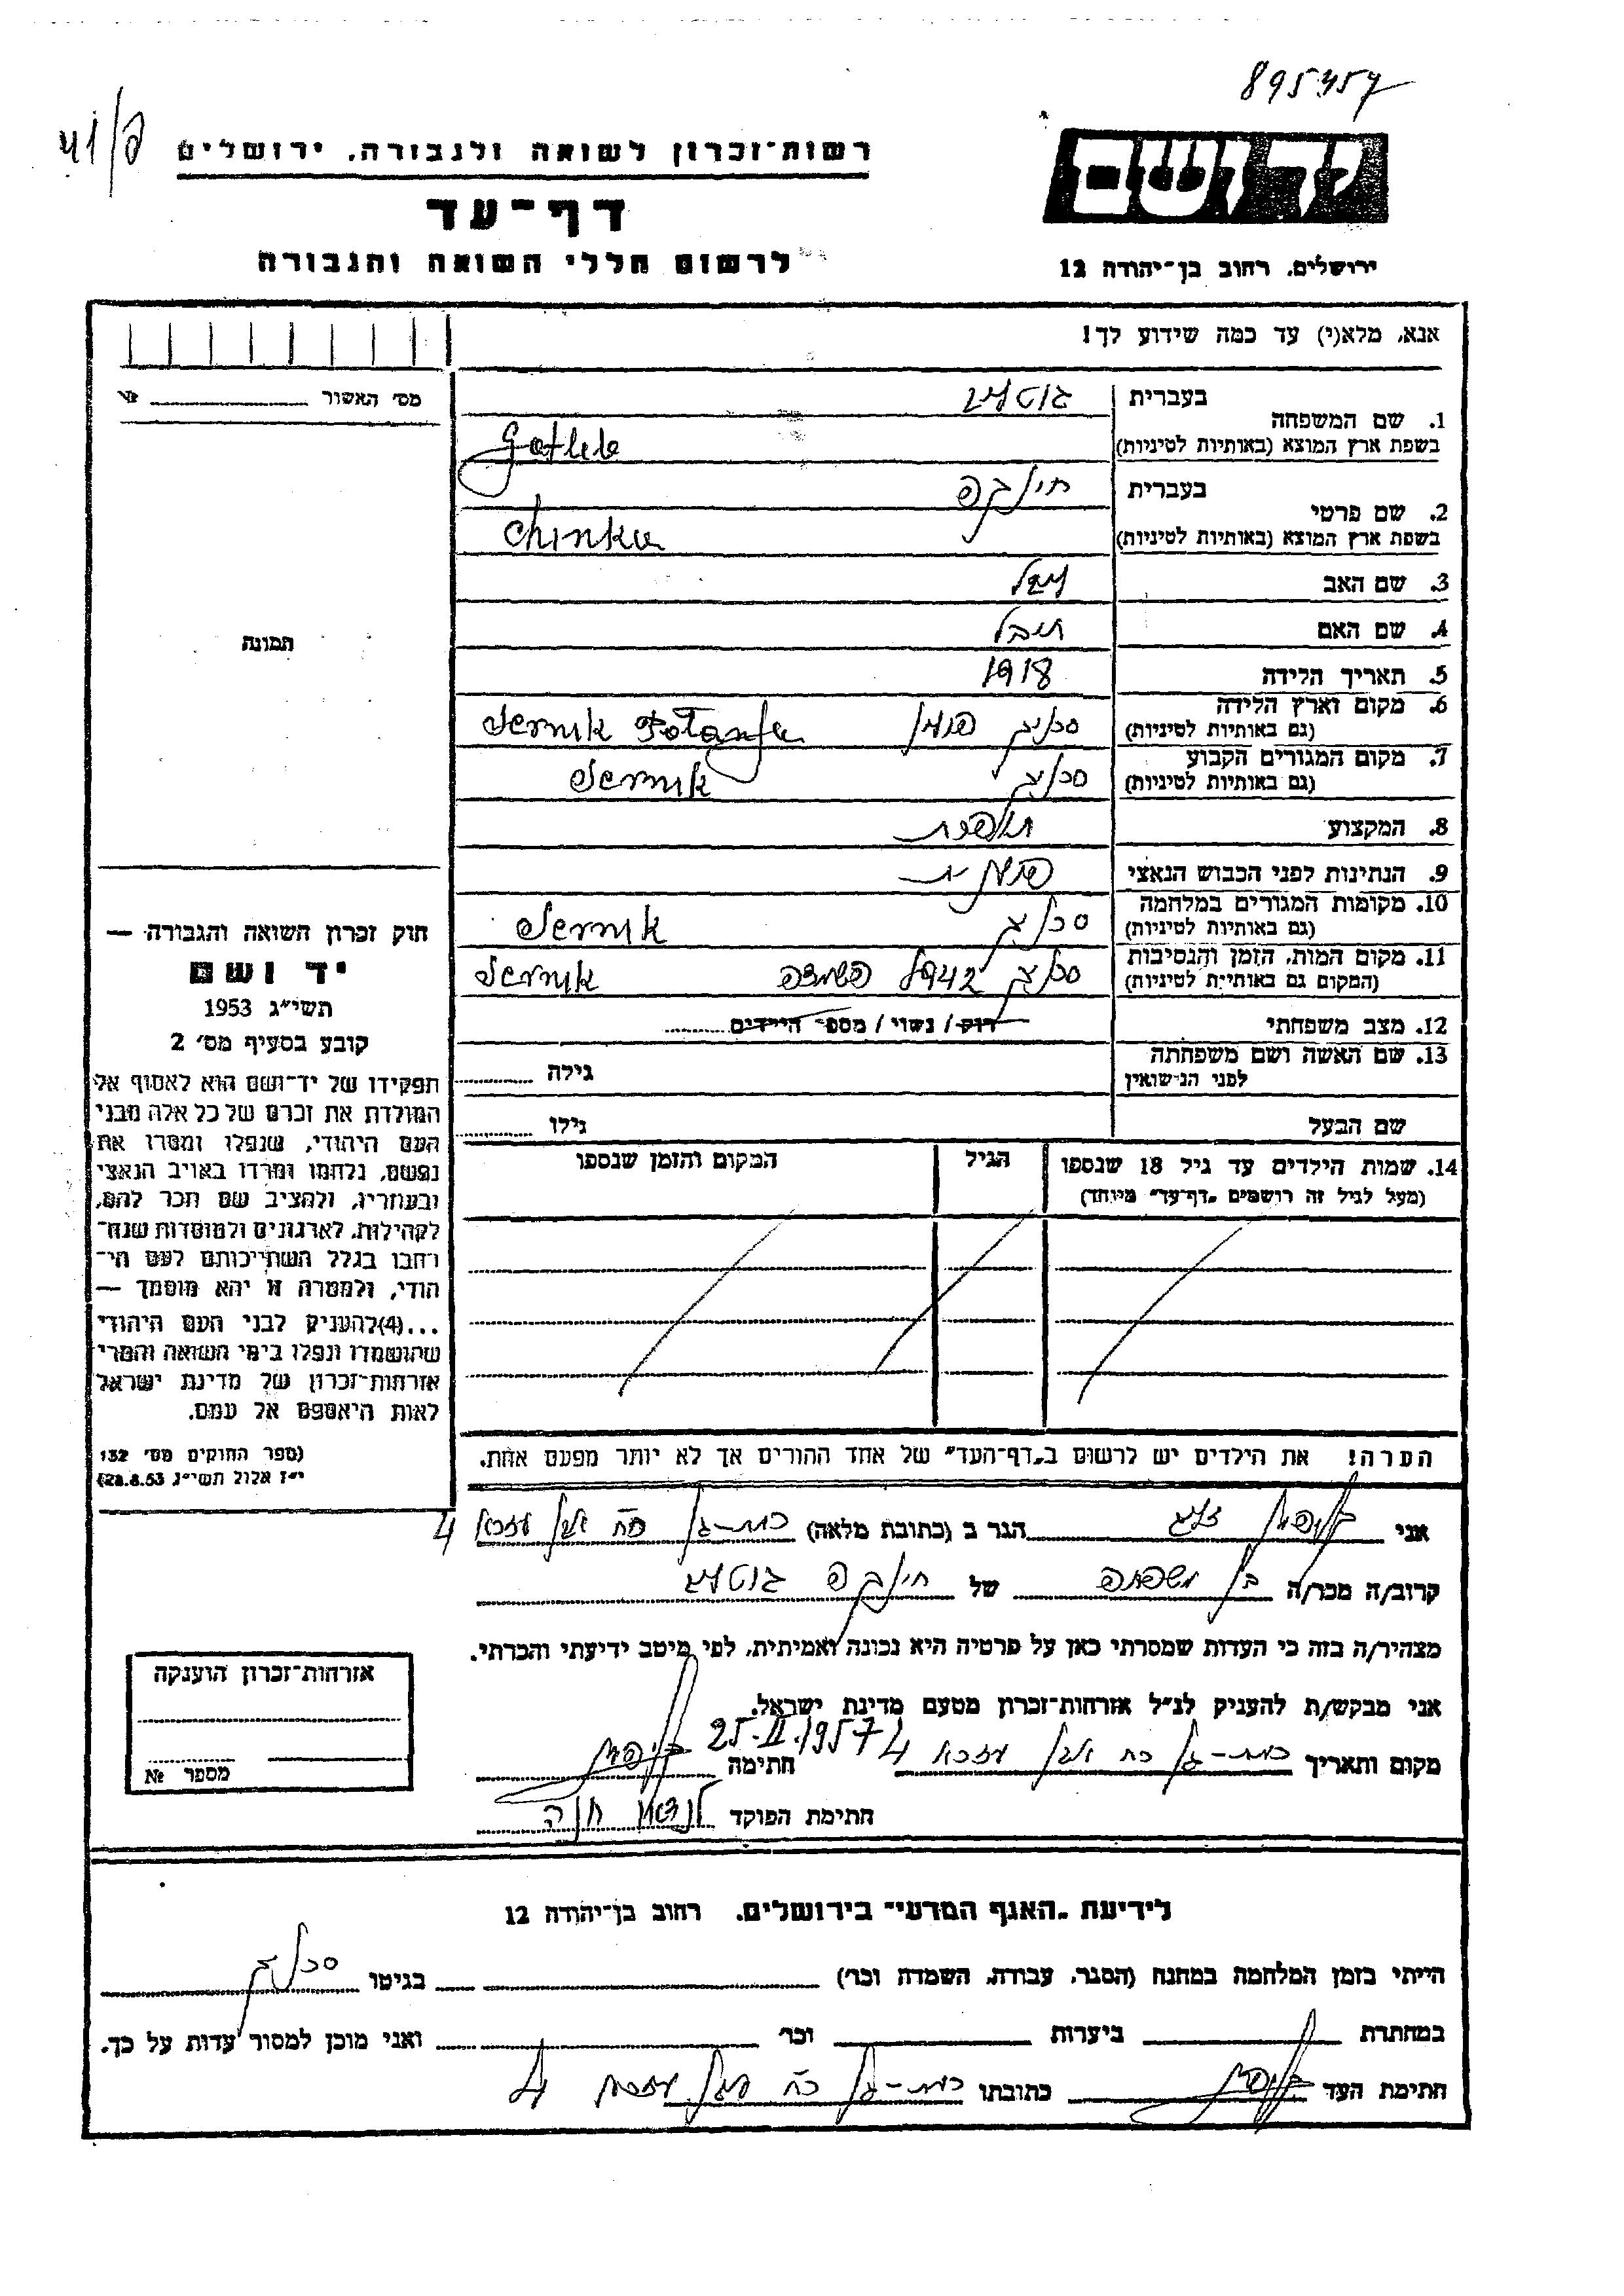 895457
41/ק
רשות־זכרון לשואה ולגבורה, ירושלים
דף־עד
לרשום חללי השואה והגבורה
ידושם
ירושלים, רחוב בן־יהודה 12
אנא, מלא(י) עד כמה שידוע לך!
מס׳ האשור № 
1. שם המשפחה
בעברית גוטליב
בשפת ארץ המוצא (באותיות לטיניות) Gotlib
2. שם פרטי
בעברית חינקה
בשפת ארץ המוצא (באותיות לטיניות) Chinka
3. שם האב
4. שם האם
5. תאריך הלידה 1918
6. מקום וארץ הלידה
(גם באותיות לטיניות) סרניק פולין Sernik Polanja
7. מקום המגורים הקבוע
(גם באותיות לטיניות) סרניק Sernik
8. המקצוע תופרת
9. הנתינות לפני הכבוש הנאצי פולנית
10. מקומות המגורים במלחמה
(גם באותיות לטיניות) סרניק Sernik
11. מקום המות, הזמן והנסיבות
(המקום גם באותיות לטיניות) סרניק 1942 השמדה Sernik
12. מצב משפחתי רוק / נשוי / מספר הילדים
13. שם האשה ושם משפחתה
לפני הנישואין גילה
שם הבעל גילו
14. שמות הילדים עד גיל 18 שנספו
(מעל לגיל זה רושמים „דף־עד״ מיוחד)
הגיל
המקום והזמן שנספו
תמונה
חוק זכרון השואה והגבורה —
יד ושם
תשי״ג 1953
קובע בסעיף מס׳ 2
תפקידו של יד־ושם הוא לאסוף אל
המולדת את זכרם של כל אלה מבני
העם היהודי, שנפלו ומסרו את
נפשם, נלחמו ומרדו באויב הנאצי
ובעוזריו, ולהציב שם וזכר להם,
לקהילות, לארגונים ולמוסדות שנח־
רבו בגלל השתייכותם לעם הי־
הודי, ולמטרה זו יהא מוסמך —
...(4)להעניק לבני העם היהודי
שהושמדו ונפלו בימי השואה והמרי
אזרחות־זכרון של מדינת ישראל
לאות היאספם אל עמם.
(ספר החוקים מס׳ 132
י״ז אלול תשי״ג 28.8.53)
הערה! את הילדים יש לרשום ב„דף־העד״ של אחד ההורים אך לא יותר מפעם אחת.
אני הגר ב (כתובת מלאה) רמת-גן 4
קרוב/ה מכר/ה בן משפחה של חינקה גוטליב
מצהיר/ה בזה כי העדות שמסרתי כאן על פרטיה היא נכונה ואמיתית, לפי מיטב ידיעתי והכרתי.
אני מבקש/ת להעניק לנ״ל אזרחות־זכרון מטעם מדינת ישראל.
מקום ותאריך רמת-גן 4 25.II.1957 חתימה
חתימת הפוקד לנדאו חנה
אזרחות־זכרון הוענקה
מספר №
לידיעת „האגף המדעי״ בירושלים, רחוב בן־יהודה 12
הייתי בזמן המלחמה במחנה (הסגר, עבודה, השמדה וכו׳) בגיטו סרניק
במחתרת ביערות וכו׳ ואני מוכן למסור עדות על כך.
חתימת העד כתובתו רמת-גן 4